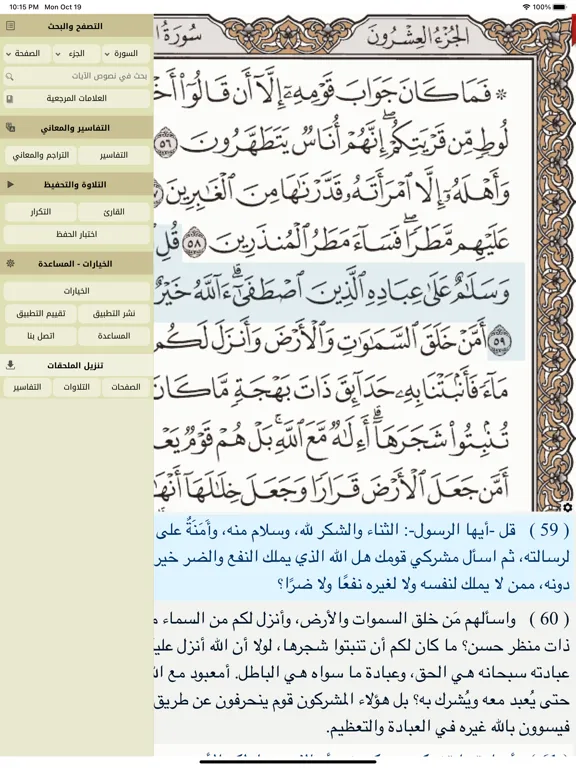 10:15 PM Mon Oct 19
100%
التصفح والبحث
السورة
الجزء
الصفحة
بحث في نصوص الآيات
العلامات المرجعية
التفاسير والمعاني
التفاسير
التراجم والمعاني
التلاوة والتحفيظ
القارئ
التكرار
اختبار الحفظ
الخيارات - المساعدة
الخيارات
نشر التطبيق
تقييم التطبيق
المساعدة
اتصل بنا
تنزيل الملحقات
الصفحات
التلاوات
التفاسير
الجُزءُ العِشْرُونَ
سُورَةُ
۞ فَمَا كَانَ جَوَابَ قَوْمِهِۦٓ إِلَّآ أَن قَالُوٓا۟
لُوطٍ مِّن قَرْيَتِكُمْ ۖ إِنَّهُمْ أُنَاسٌ يَتَطَهَّرُونَ ٥٦
وَأَهْلَهُۥٓ إِلَّا ٱمْرَأَتَهُۥ قَدَّرْنَٰهَا مِنَ ٱلْغَٰبِرِينَ
عَلَيْهِم مَّطَرًا ۖ فَسَآءَ مَطَرُ ٱلْمُنذَرِينَ ٥٨ قُلِ
وَسَلَٰمٌ عَلَىٰ عِبَادِهِ ٱلَّذِينَ ٱصْطَفَىٰٓ ۗ ءَآللَّهُ خَيْرٌ
٥٩ أَمَّنْ خَلَقَ ٱلسَّمَٰوَٰتِ وَٱلْأَرْضَ وَأَنزَلَ لَكُم
مَآءً فَأَنۢبَتْنَا بِهِۦ حَدَآئِقَ ذَاتَ بَهْجَةٍ مَّا كَانَ
تُنۢبِتُوا۟ شَجَرَهَآ ۗ أَءِلَٰهٌ مَّعَ ٱللَّهِ ۚ بَلْ هُمْ قَوْمٌ
أَمَّن جَعَلَ ٱلْأَرْضَ قَرَارًا وَجَعَلَ خِلَٰلَهَآ
( 59 ) قل -أيها الرسول-: الثناء والشكر لله، وسلام منه، وأَمَنَةٌ على
لرسالته، ثم اسأل مشركي قومك هل الله الذي يملك النفع والضر خير
دونه، ممن لا يملك لنفسه ولا لغيره نفعًا ولا ضرًا؟
( 60 ) واسألهم مَن خلق السموات والأرض، وأنزل لكم من السماء
ذات منظر حسن؟ ما كان لكم أن تنبتوا شجرها، لولا أن الله أنزل
عبادته سبحانه هي الحق، وعبادة ما سواه هي الباطل. أمعبود مع
حتى يُعبد معه ويُشرك به؟ بل هؤلاء المشركون قوم ينحرفون عن طريق
فيسوون بالله غيره في العبادة والتعظيم.